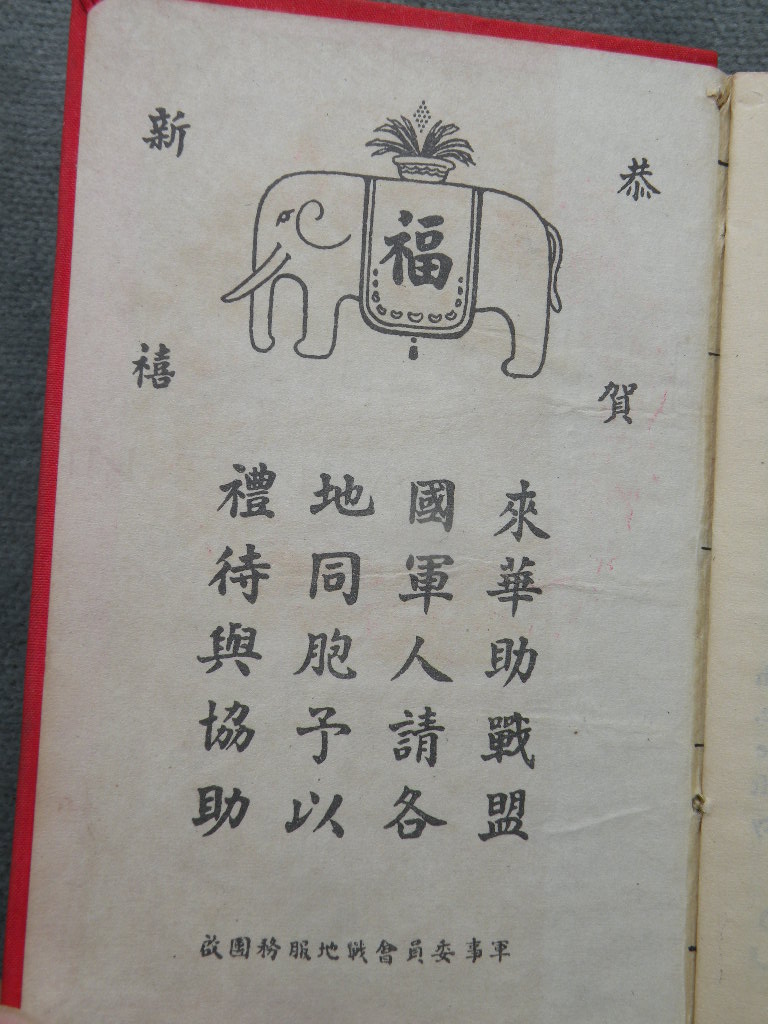 恭賀
新禧
福
來華助戰盟
國軍人請各
地同胞予以
禮待與協助
軍事委員會戰地服務團啟